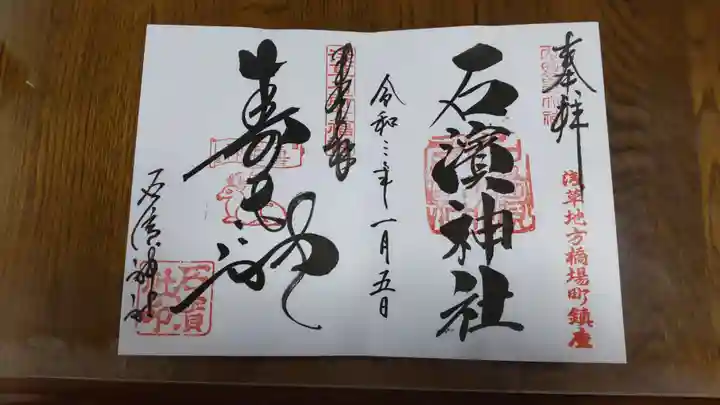 奉拝
浅草地方橋場町鎮座
石濱神社
令和三年一月五日
奉拝
寿老神
石濱神社
石濱
社印